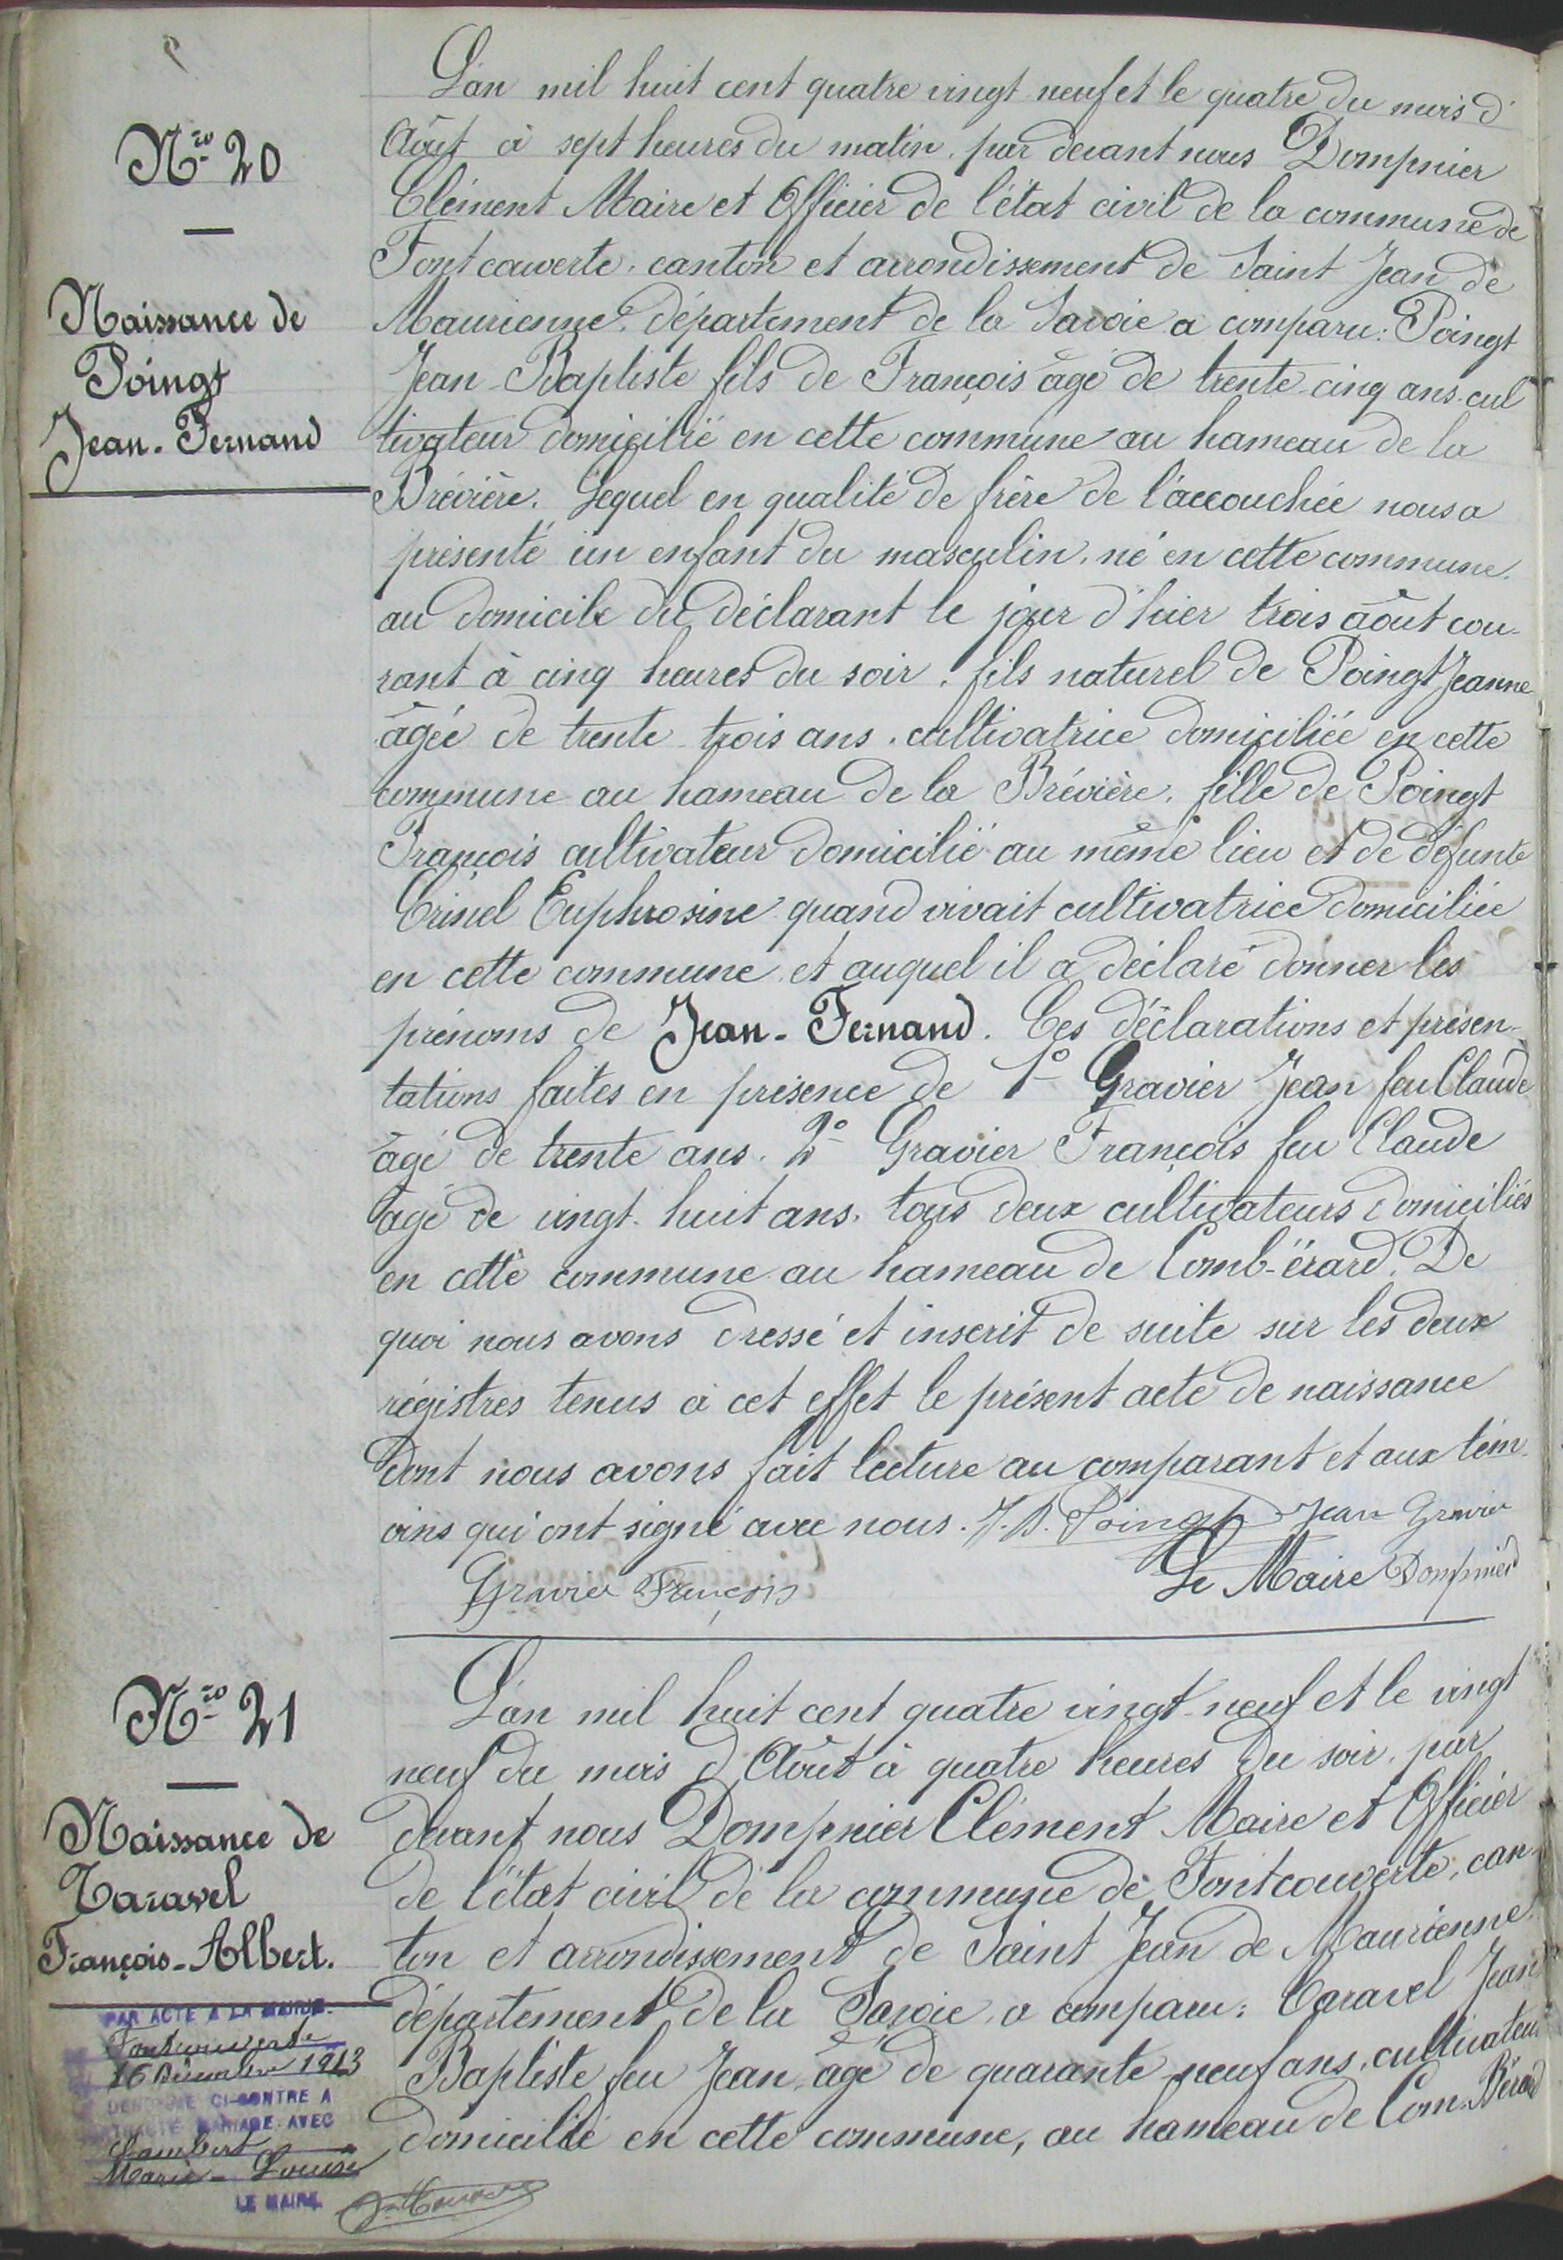 Nro 20
Naissance de
Poingt
Jean-Fernand
L'an mil huit cent quatre vingt neuf et le quatre du mois d'
Août à sept heures du matin, par devant nous Dompnier
Clément Maire et Officier de l'état civil de la commune de
Fontcouverte, canton et arrondissement de Saint Jean de
Maurienne, département de la Savoie a comparu: Poingt
Jean-Baptiste fils de François âgé de trente-cinq ans, cul
tivateur domicilié en cette commune au hameau de la
Brévière. Lequel en qualité de frère de l'accouchée nous a
présenté un enfant du masculin, né en cette commune,
au domicile du déclarant le jour d'hier trois août cou-
rant à cinq heures du soir, fils naturel de Poingt Jeanne
âgée de trente-trois ans, cultivatrice domiciliée en cette
commune au hameau de la Brévière, fille de Poingt
François cultivateur domicilié au même lieu et de défunte
Euphrosine quand vivait cultivatrice domiciliée
en cette commune, et auquel il a déclaré donner les
prénoms de Jean-Fernand. Ces déclarations et présen-
tations faites en présence de 1° Gravier Jean feu Claude
âgé de trente ans, 2° Gravier François feu Claude
âgé de vingt-huit ans, tous deux cultivateurs domiciliés
en cette commune au hameau de Comb-érard. De
quoi nous avons dressé et inscrit de suite sur les deux
régistres tenus à cet effet le présent acte de naissance
dont nous avons fait lecture au comparant et aux tém
oins qui ont signé avec nous. J. B. Poingt Jean Gravier
Gravier François Le Maire Dompnier
Nro 21
Naissance de
Taravel
François-Albert.
L'an mil huit cent quatre vingt-neuf et le vingt
neuf du mois d'Août à quatre heures du soir, par
devant nous Dompnier Clément Maire et Officier
de l'état civil de la commune de Fontcouverte, can-
ton et arrondissement de Saint Jean de Maurienne,
département de la Savoie, a comparu: Taravel Jean
Baptiste feu Jean, âgé de quarante-neuf ans, cultivateur
domicilié en cette commune, au hameau de Com-Bérard
PAR ACTE A LA MAIRIE
Fontcouverte
16 Décembre 1913
CI-CONTRE A
CONTRACTÉ MARIAGE AVEC
Lambert
Marie-Louise
LE MAIRE